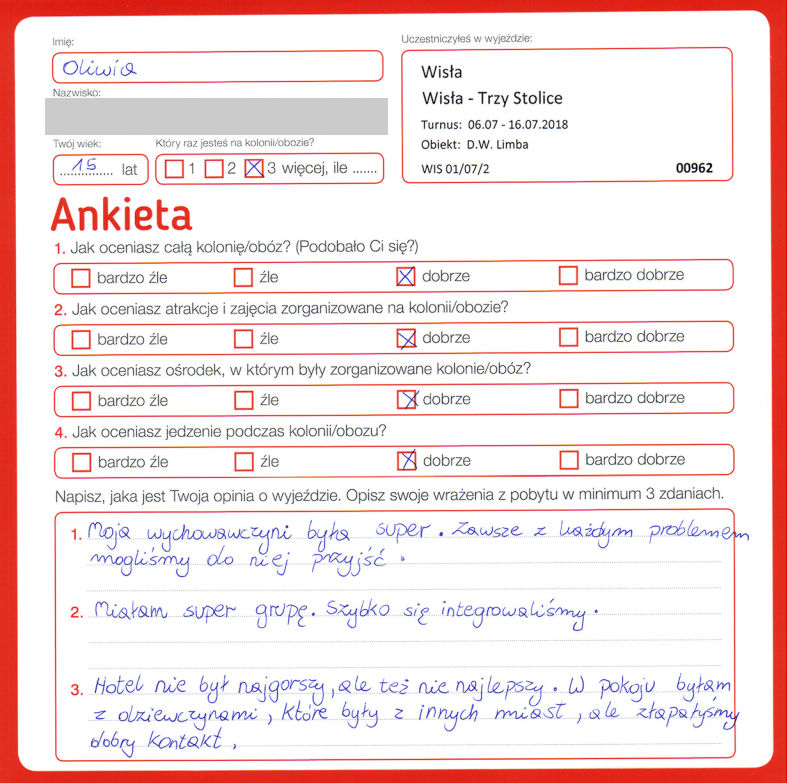 Imię:
Uczestniczyłeś w wyjeździe:
Oliwia
Wisła
Wisła - Trzy Stolice
Turnus: 06.07 - 16.07.2018
Obiekt: D.W. Limba
WIS 01/07/2 00962
Nazwisko:
Twój wiek: Który raz jesteś na kolonii/obozie?
15 lat 1 2 3 więcej, ile .......
Ankieta
1. Jak oceniasz całą kolonię/obóz? (Podobało Ci się?)
bardzo źle źle dobrze bardzo dobrze
2. Jak oceniasz atrakcje i zajęcia zorganizowane na kolonii/obozie?
bardzo źle źle dobrze bardzo dobrze
3. Jak oceniasz ośrodek, w którym były zorganizowane kolonie/obóz?
bardzo źle źle dobrze bardzo dobrze
4. Jak oceniasz jedzenie podczas kolonii/obozu?
bardzo źle źle dobrze bardzo dobrze
Napisz, jaka jest Twoja opinia o wyjeździe. Opisz swoje wrażenia z pobytu w minimum 3 zdaniach.
1. Moja wychowawczyni była super. Zawsze z każdym problemem
mogliśmy do niej przyjść.
2. Miałam super grupę. Szybko się integrowaliśmy.
3. Hotel nie był najgorszy, ale też nie najlepszy. W pokoju byłam
z dziewczynami, które były z innych miast, ale złapałyśmy
dobry kontakt.